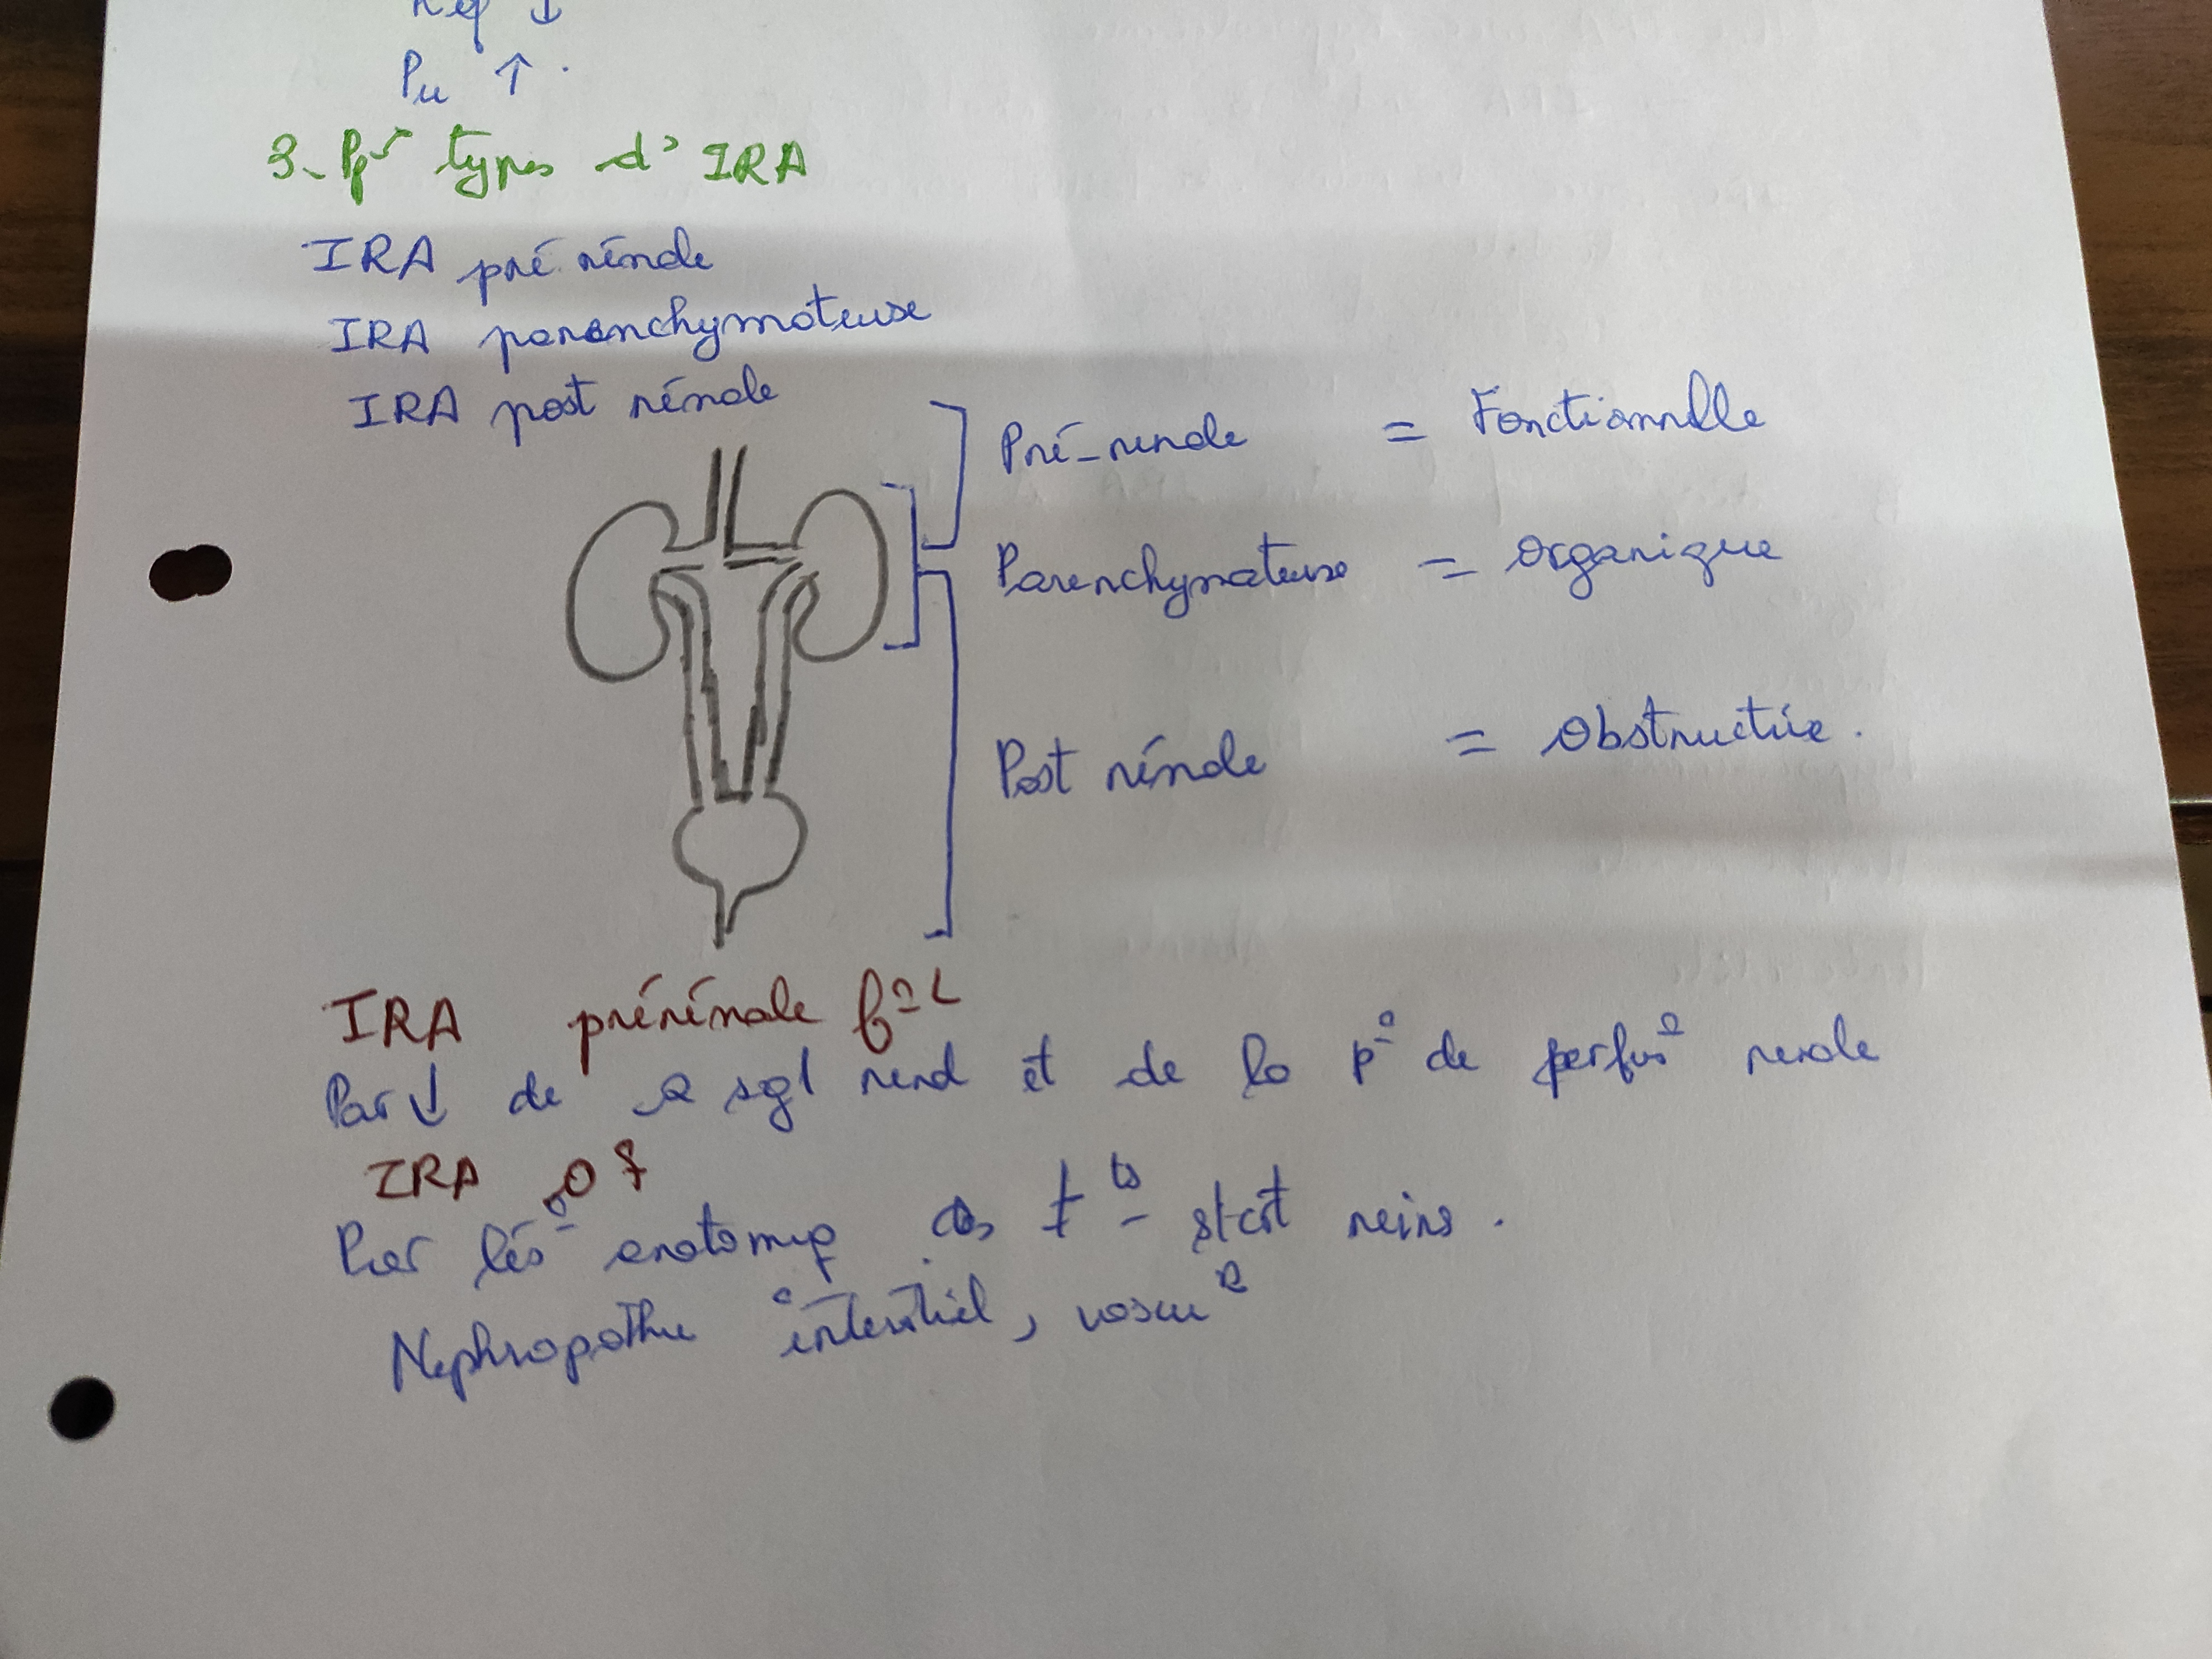 Pu ↑ .
3- Ppx types d' IRA
IRA pré rénale
IRA parenchymateuse
IRA post rénale
Pré-renale = Fonctionnelle
Parenchymateuse = organique
Post rénale = Obstructive .
IRA prérénale
Par ↓ de sgl renal et de la p° de perfus° renale
IRA
Par lés° anatomiq reins .
Nephropathie interstiel, vascu R